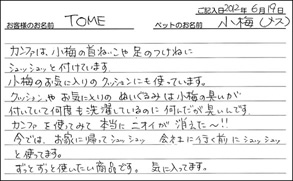 ご記入日2012年 6月19日
お客様のお名前 TOME ペットのお名前 小梅(メス)
カンファは、小梅の首ねっこや足のつけねに
シュッシュッと付けています
小梅のお気に入りのクッションにも使っています。
クッションやお気に入りのぬいぐるみは小梅の臭いが
付いていて何度も洗濯しているのに何だが臭いしです。
カンファを使ってみて本当にニオイが消えた〜!!
今では、お家に帰ってシュッシュッ 会社に行く前にシュッシュッ
と使ってます。
ずっとずっと使いたい商品です。気に入ってます。